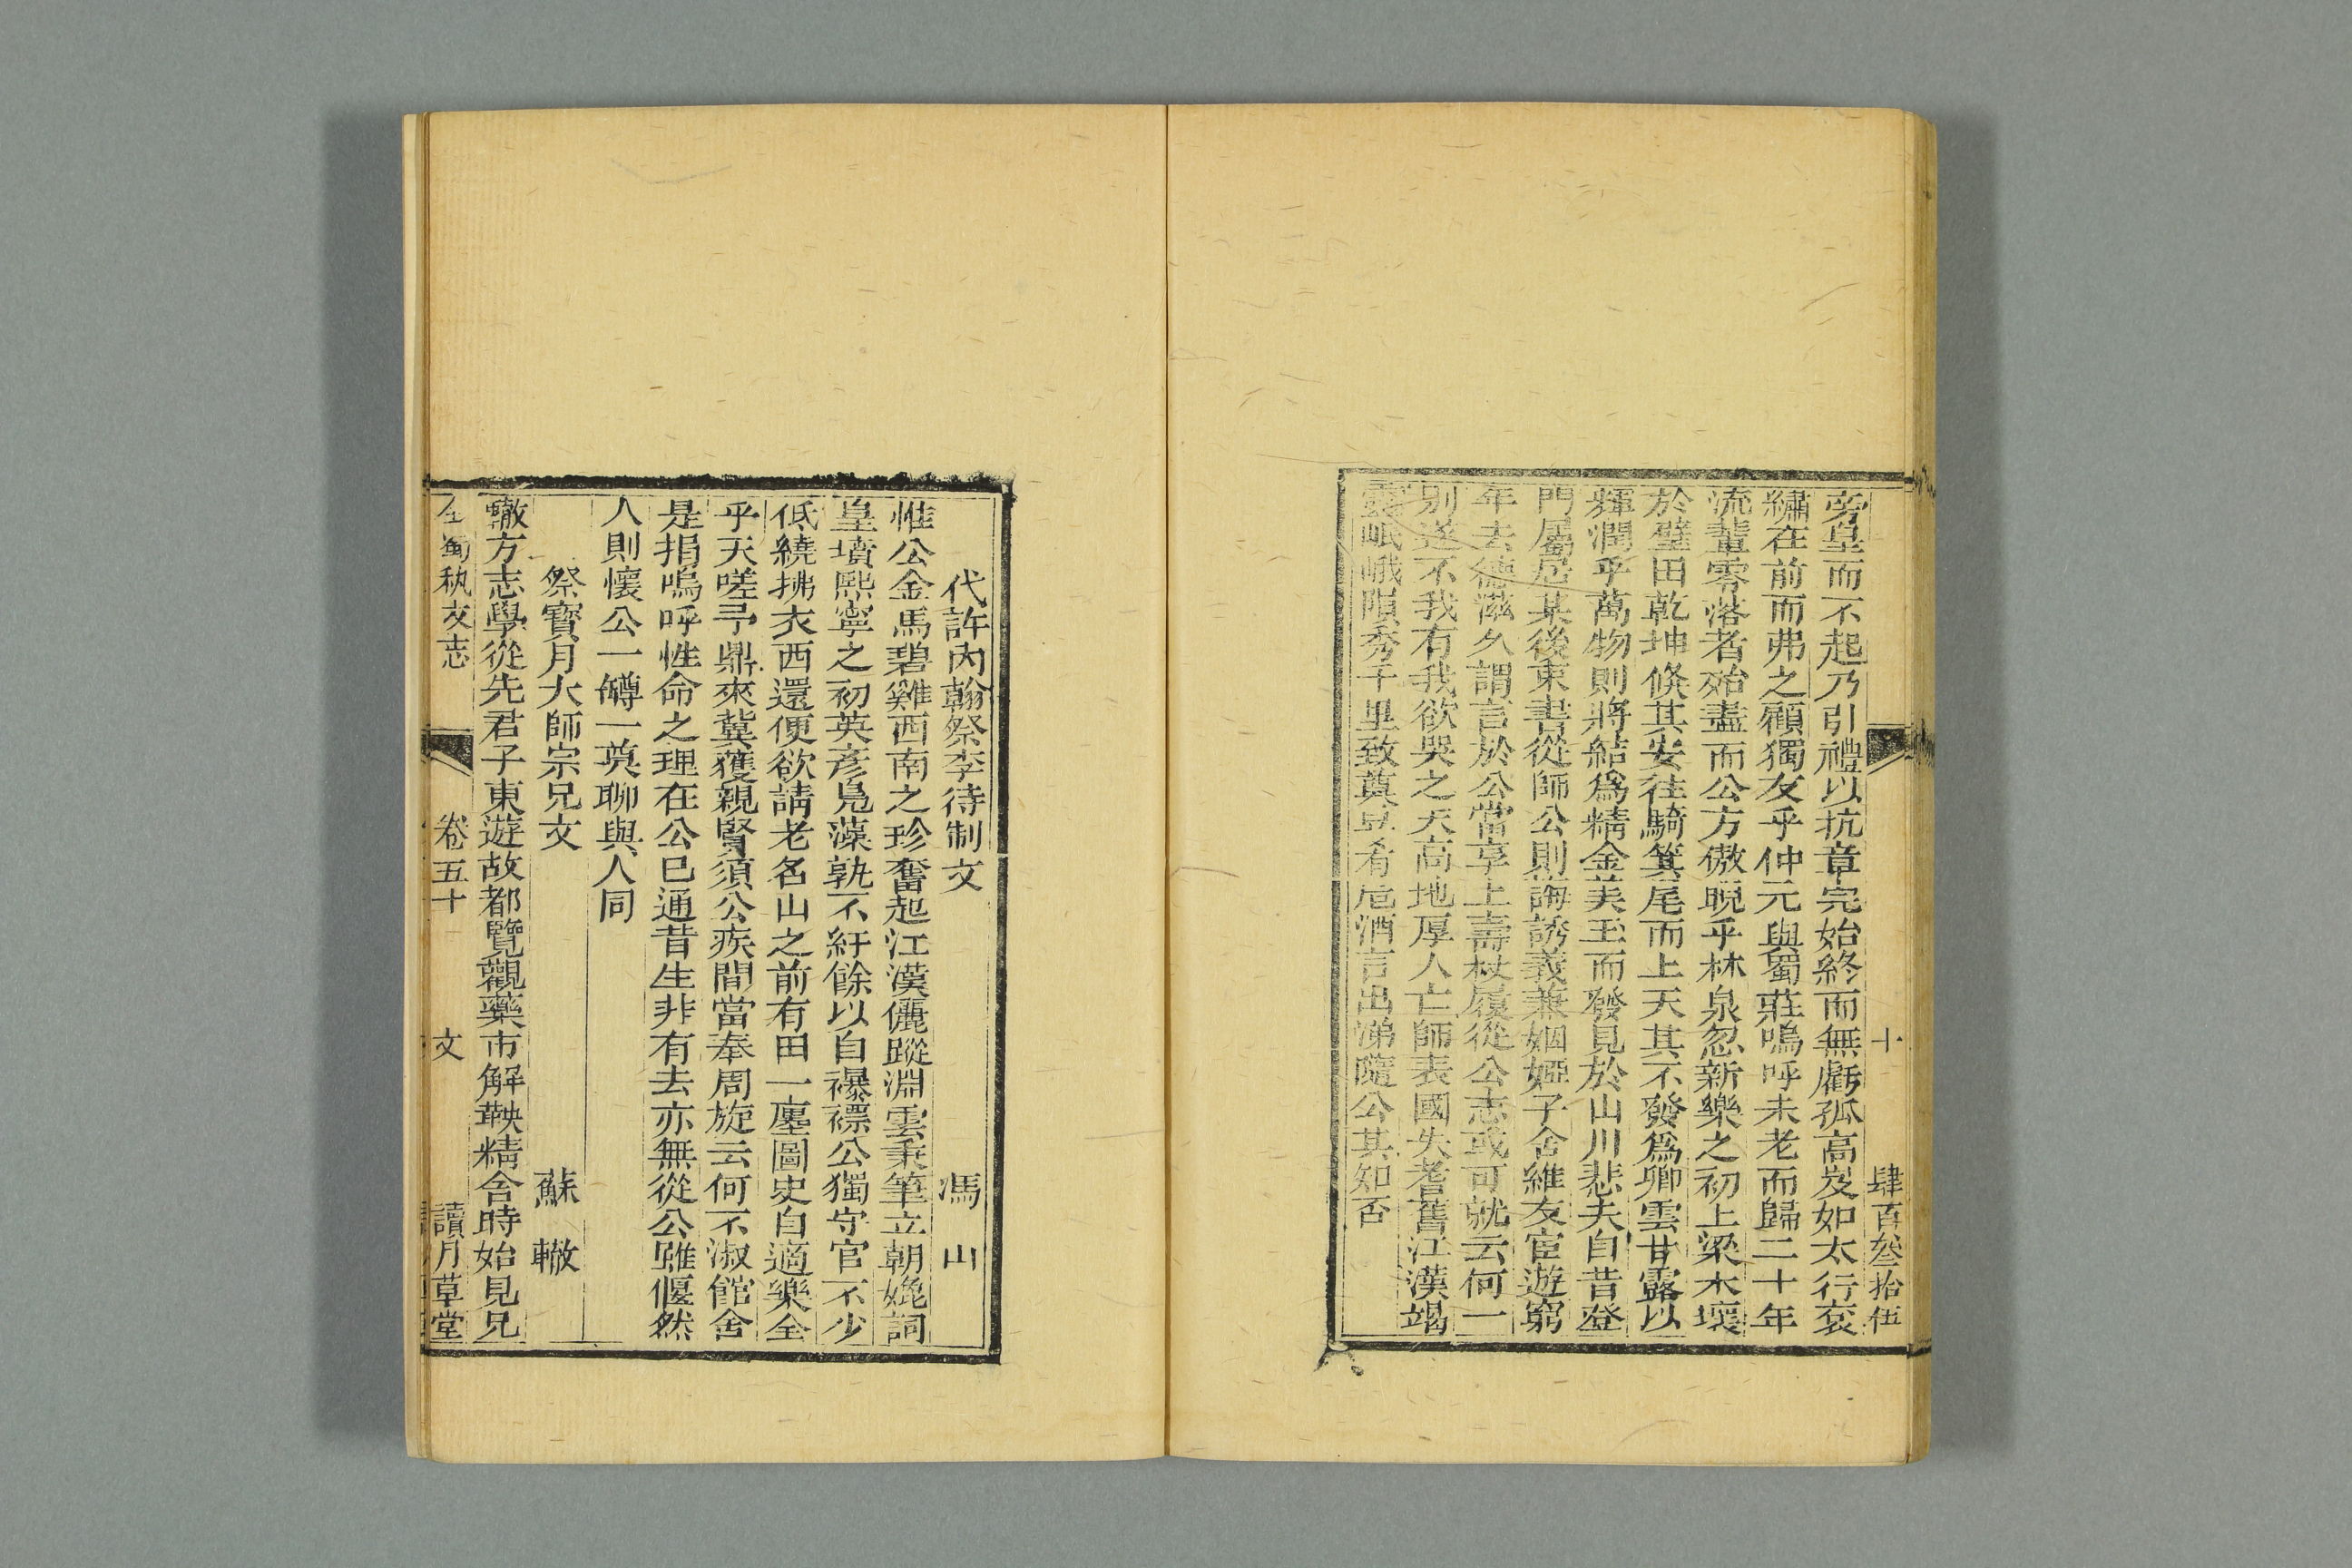 十　肆百叁拾伍
旁皇而不起乃引禮以抗章完始終而無虧孤高岌如太行袞
繡在前而弗之顧獨友乎仲元與蜀莊嗚呼未老而歸二十年
流輩零落者殆盡而公方傲睨乎林泉忽新樂之初上梁木壞
於璧田乾坤倏其安往騎箕尾而上天其不發爲卿雲甘露以
輝潤乎萬物則將結爲精金美玉而發見於山川悲夫自昔登
門屬居某後束書從師公則誨誘義兼姻婭子舍維友宦遊窮
年去德滋久謂言於公當享上壽杖屨從公志或可就云何一
別遂不我有我欲哭之天高地厚人亡師表國失耆舊江漢竭
靈岷峨隕秀千里致奠豆肴巵酒言出涕隨公其知否
代許內翰祭李待制文　馮山
惟公金馬碧雞西南之珍奮起江漢儷蹤淵雲秉筆立朝婏詞
皇墳熙寧之初英彥鳧藻孰不紆餘以自襮褾公獨守官不少
低繞拂衣西還便欲請老名山之前有田一廛圖史自適樂全
乎天嗟予鼎來冀獲親賢須公疾間當奉周旋云何不淑館舍
是捐嗚呼性命之理在公巳通昔生非有去亦無從公雖偃然
人則懷公一罇一奠聊與人同
祭寶月大師宗兄文　蘇轍
轍方志學從先君子東遊故都覽觀藥市解鞅精舍時始見兄
全蜀秇文志　卷五十　文　讀月草堂